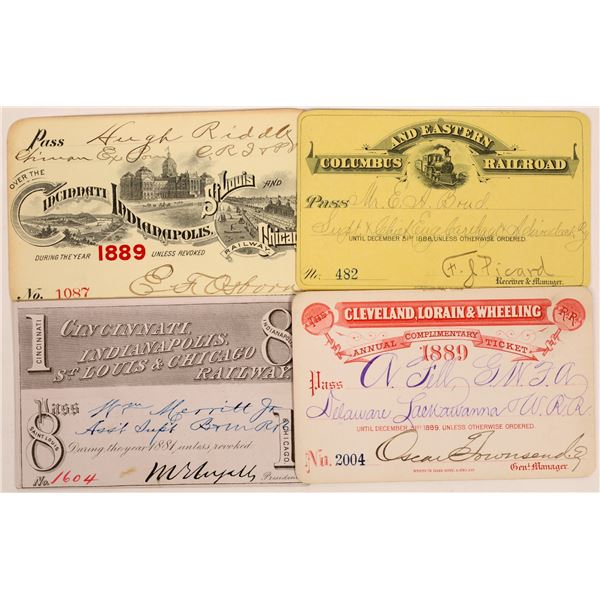 Pass Hugh Riddle
OVER THE
CINCINNATI
INDIANAPOLIS,
ST. LOUIS AND
Chicago
RAILWAY
DURING THE YEAR 1889 UNLESS REVOKED
No. 1087 E. F. Osborn
AND EASTERN
COLUMBUS RAILROAD
Pass Mr. E. A. Bond
UNTIL DECEMBER 31ST 1888, UNLESS OTHERWISE ORDERED.
No. 482 F. J. Picard
Receiver & Manager.
CINCINNATI
CINCINNATI,
INDIANAPOLIS,
ST LOUIS & CHICAGO
RAILWAY
INDIANAPOLIS
1 8
Pass Wm Merritt Jr
Asst Supt B&M R.R.
SAINT LOUIS
8 1
CHICAGO
During the year 1881 unless revoked.
No. 1604 M E Ingalls
President
CLEVELAND, LORAIN & WHEELING
R.R.
ANNUAL COMPLIMENTARY TICKET
1889
Pass A. Fell G.W.F.A.
Delaware Lackawanna & W.R.R.
UNTIL DECEMBER 31ST 1889, UNLESS OTHERWISE ORDERED.
No. 2004 Oscar Townsend
Genl. Manager.